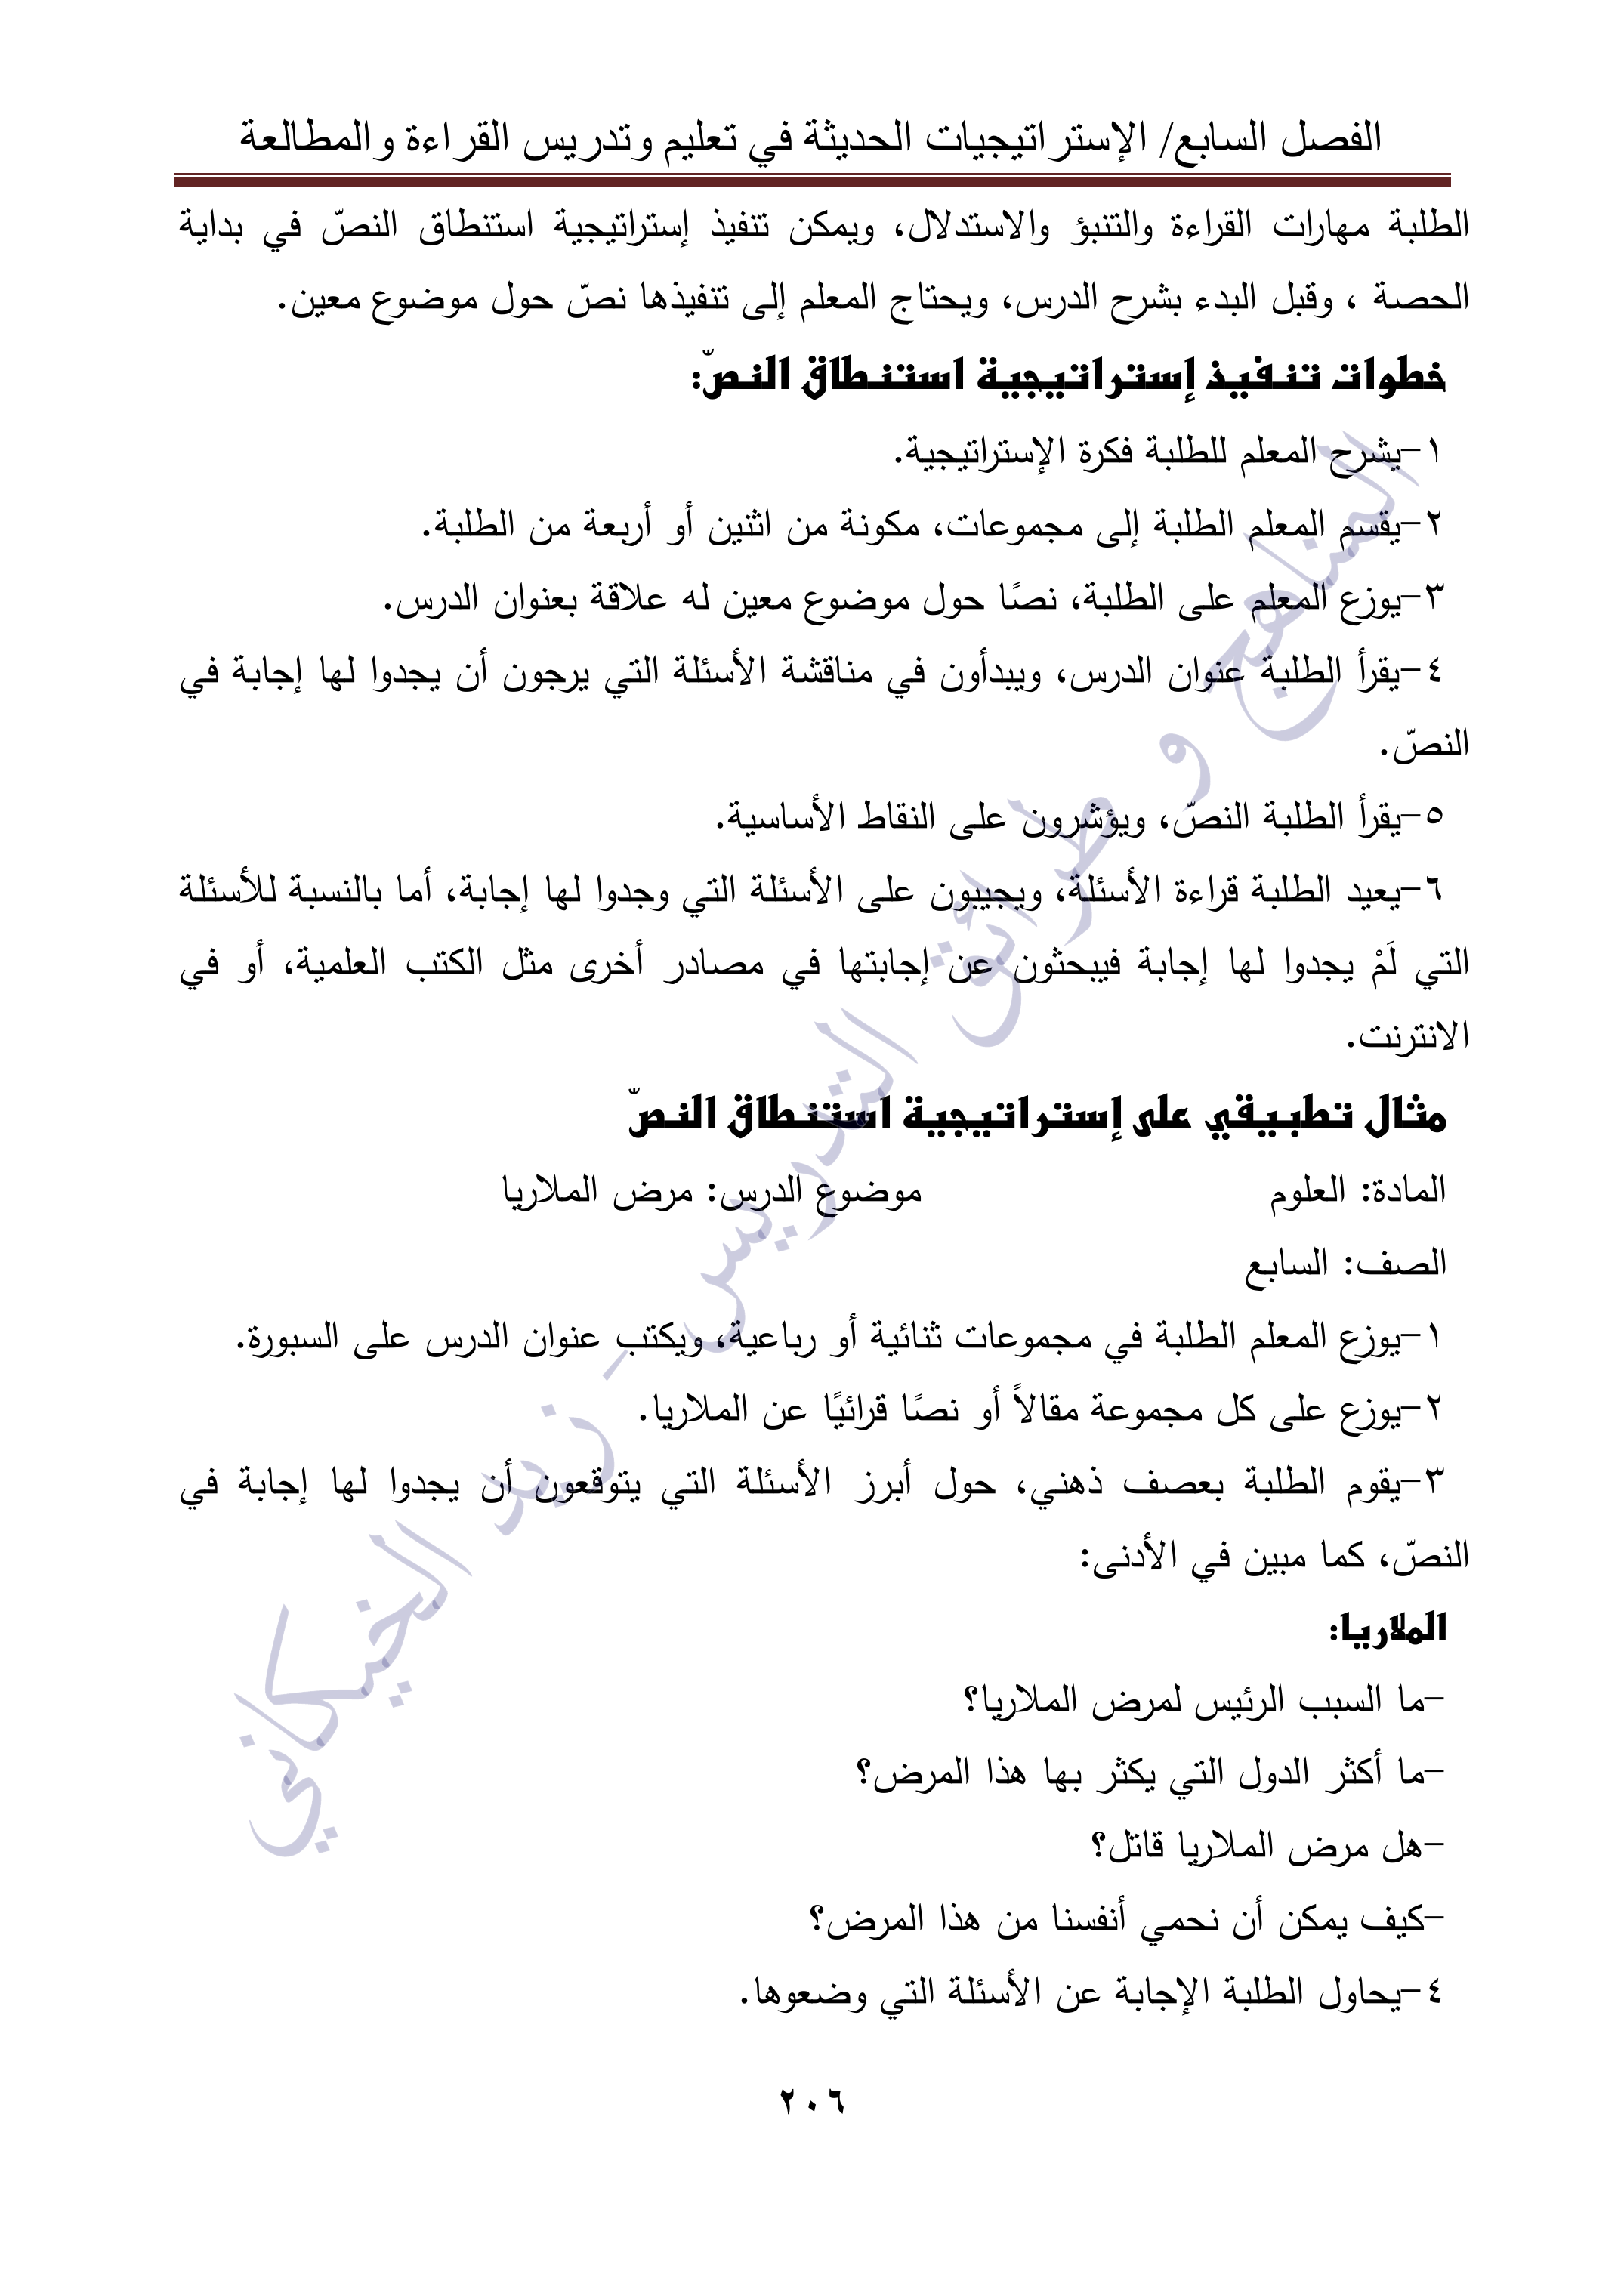 الفصل السابع/ الإستراتيجيات الحديثة في تعليم وتدريس القراءة والمطالعة
الطلبة مهارات القراءة والتنبؤ والاستدلال، ويمكن تنفيذ إستراتيجية استنطاق النصّ في بداية
الحصة ، وقبل البدء بشرح الدرس، ويحتاج المعلم إلى تنفيذها نصّ حول موضوع معين.
خطوات تنفيذ إستراتيجية استنطاق النصّ:
١-يشرح المعلم للطلبة فكرة الإستراتيجية.
٢-يقسم المعلم الطلبة إلى مجموعات، مكونة من اثنين أو أربعة من الطلبة.
٣-يوزع المعلم على الطلبة، نصًا حول موضوع معين له علاقة بعنوان الدرس.
٤-يقرأ الطلبة عنوان الدرس، ويبدأون في مناقشة الأسئلة التي يرجون أن يجدوا لها إجابة في
النصّ.
٥-يقرأ الطلبة النصّ، ويؤشرون على النقاط الأساسية.
٦-يعيد الطلبة قراءة الأسئلة، ويجيبون على الأسئلة التي وجدوا لها إجابة، أما بالنسبة للأسئلة
التي لَمْ يجدوا لها إجابة فيبحثون عن إجابتها في مصادر أخرى مثل الكتب العلمية، أو في
الانترنت.
مثال تطبيقي على إستراتيجية استنطاق النصّ
المادة: العلوم موضوع الدرس: مرض الملاريا
الصف: السابع
١-يوزع المعلم الطلبة في مجموعات ثنائية أو رباعية، ويكتب عنوان الدرس على السبورة.
٢-يوزع على كل مجموعة مقالاً أو نصًا قرائيًا عن الملاريا.
٣-يقوم الطلبة بعصف ذهني، حول أبرز الأسئلة التي يتوقعون أن يجدوا لها إجابة في
النصّ، كما مبين في الأدنى:
الملاريا:
-ما السبب الرئيس لمرض الملاريا؟
-ما أكثر الدول التي يكثر بها هذا المرض؟
-هل مرض الملاريا قاتل؟
-كيف يمكن أن نحمي أنفسنا من هذا المرض؟
٤-يحاول الطلبة الإجابة عن الأسئلة التي وضعوها.
٢٠٦
المناهج و طرائق التدريس - زيد الخيكاني